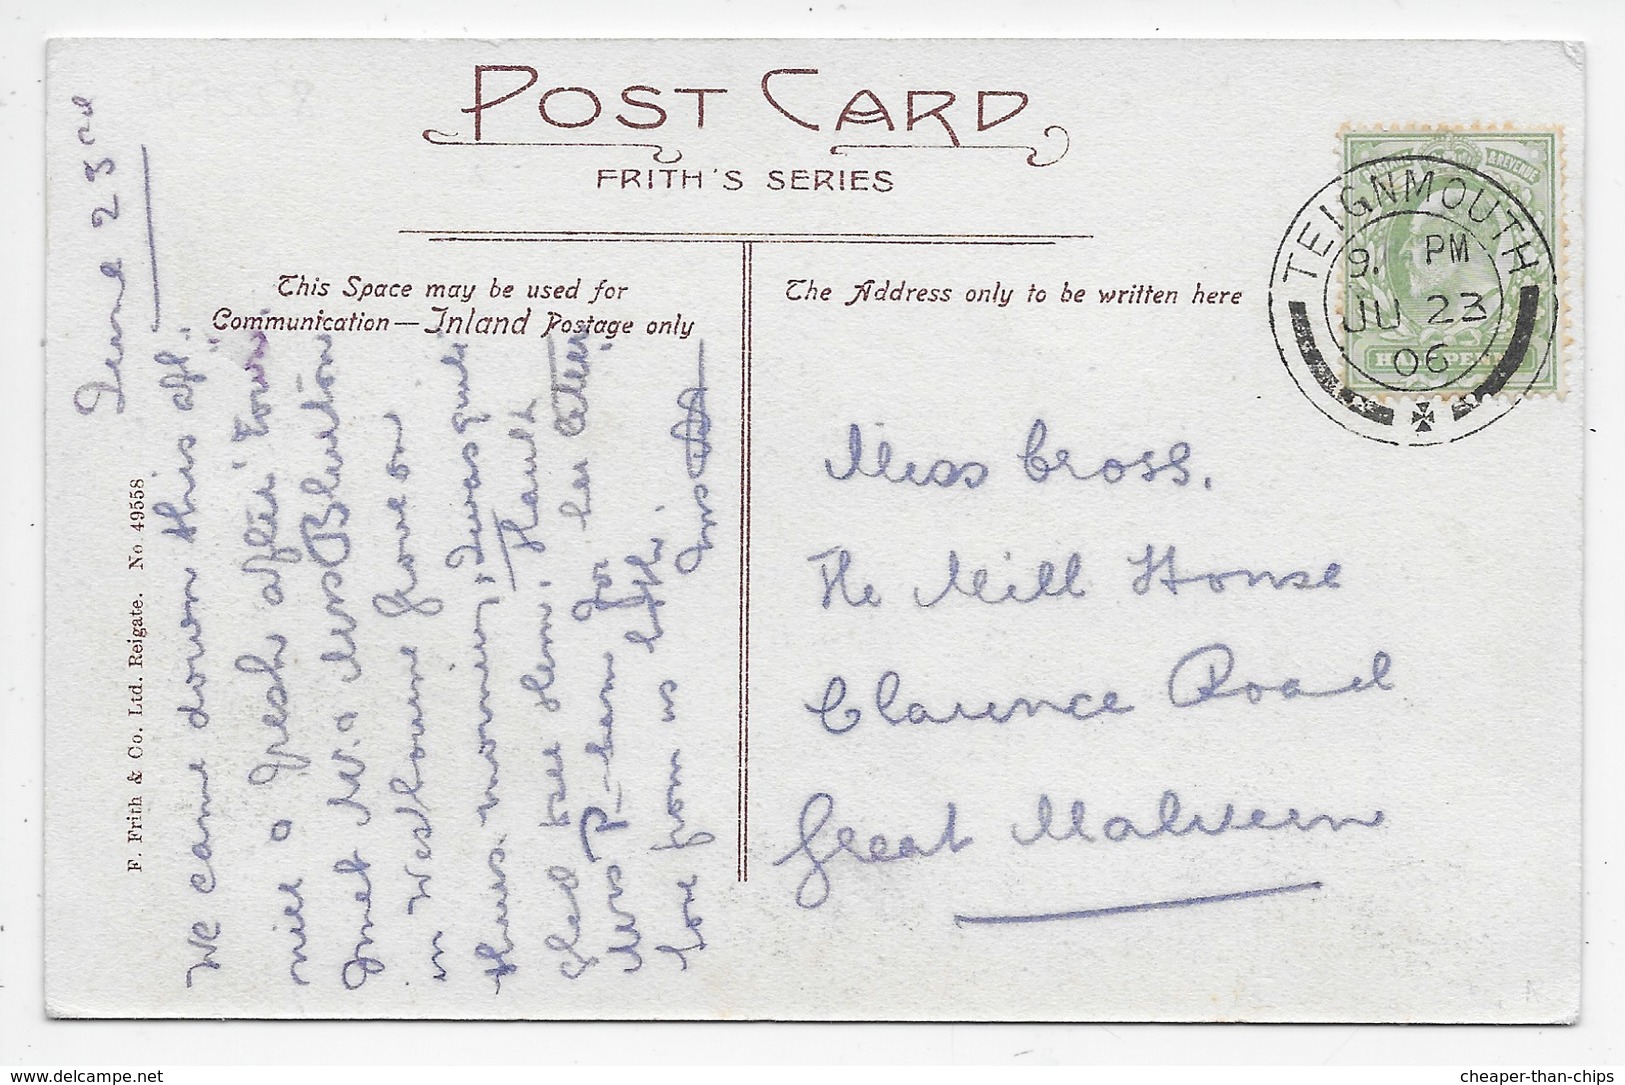 POST CARD
FRITH'S SERIES
This Space may be used for
Communication — Inland Postage only
The Address only to be written here
& REVENUE
HALFPENNY
TEIGNMOUTH
9. PM
JU 23
06
Miss Cross.
The Mill House
Clarence Road
Great Malvern
June 23rd
We came down this aft.
nice & fresh after town.
met Mr & Mrs
in Westbourne Grove on
thurs. morning, I was quite
glad to see them. Thank
Mrs P— for her letter,
love from us both.
F. Frith & Co. Ltd. Reigate. No. 49558
cheaper-than-chips
https://www.delcampe.net